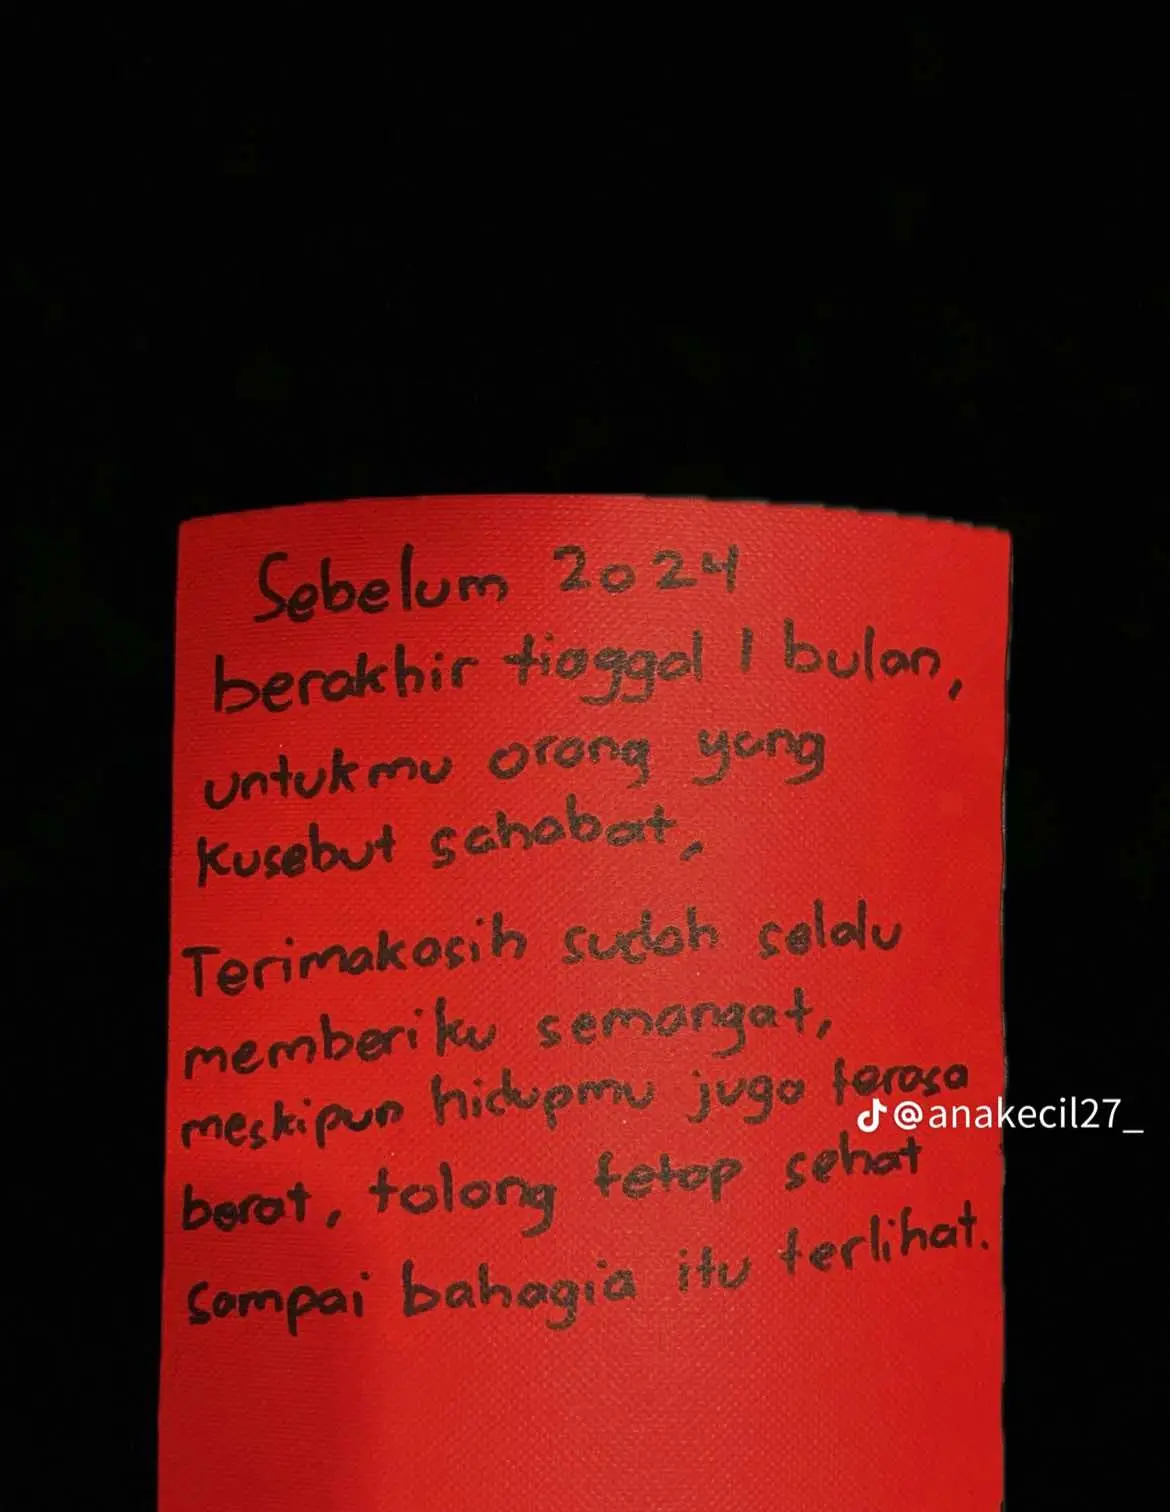 Sebelum 2024
berakhir tinggal 1 bulan,
untukmu orang yang
kusebut sahabat,
Terimakasih sudah selalu
memberiku semangat,
meskipun hidupmu juga terasa
@anakecil27_
berat, tolong tetap sehat
sampai bahagia itu terlihat.